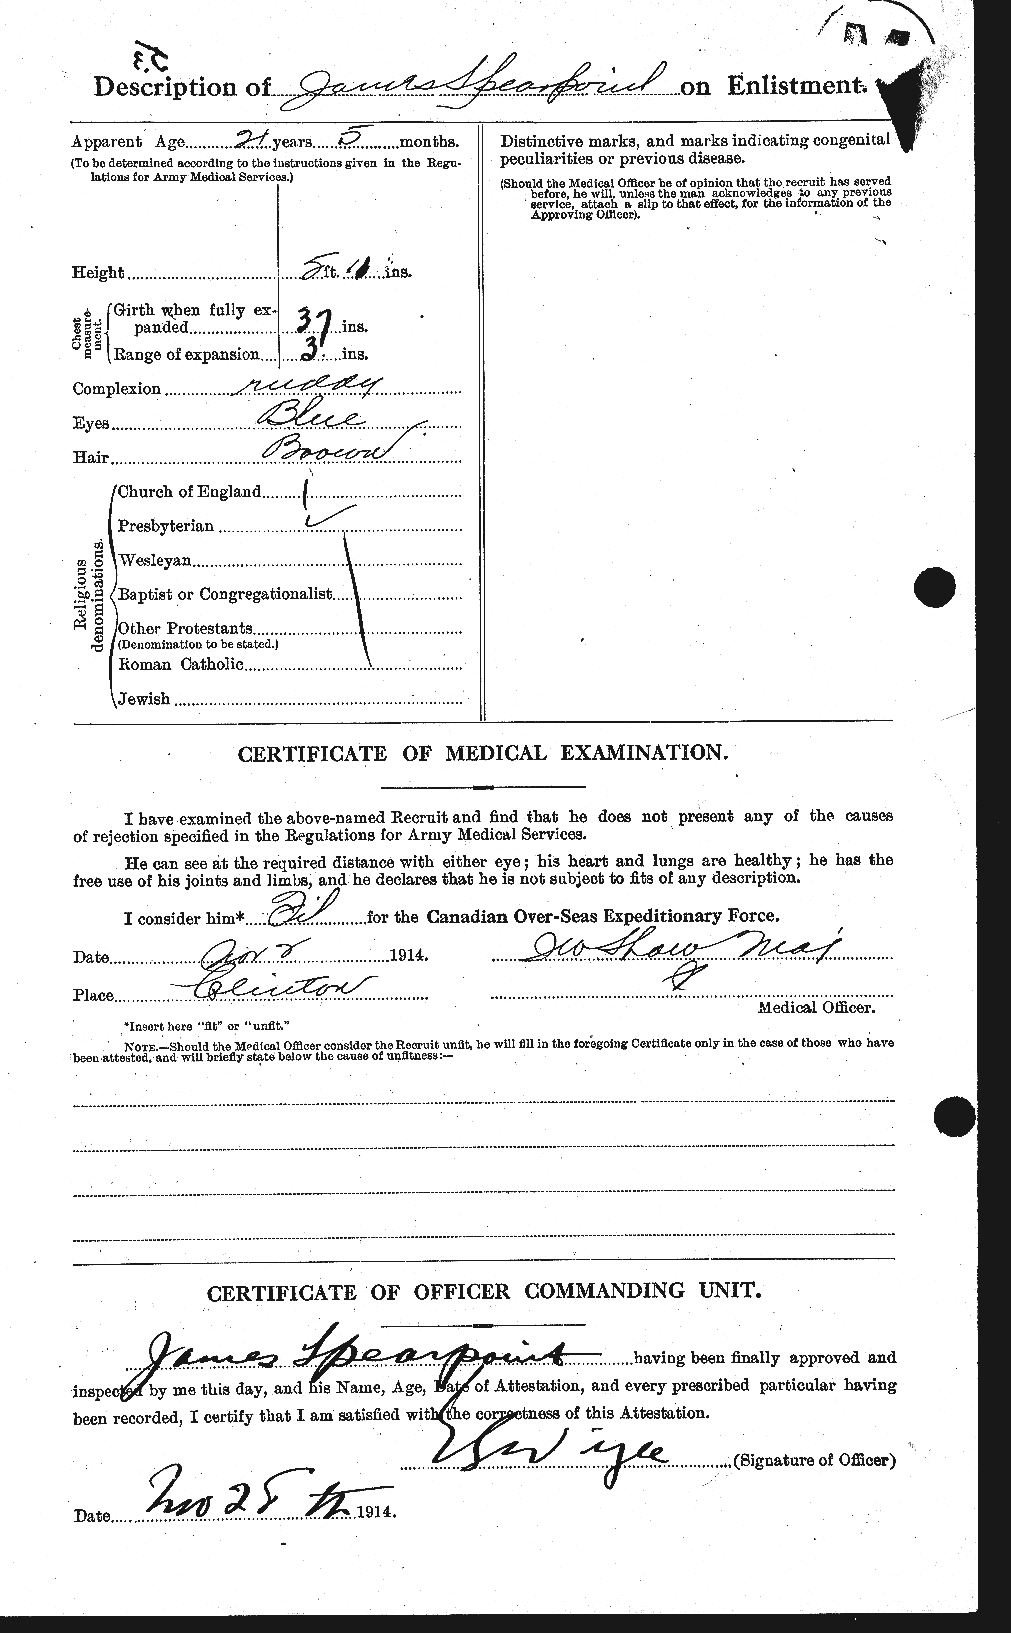 Description of James Spearpoint on Enlistment.
Apparent Age 21 years 5 months.
(To be determined according to the instructions given in the Regu-
lations for Army Medical Services.)
Height 5 ft. ins.
Chest measure-ment.
Girth when fully ex-
panded 37 ins.
Range of expansion 3 ins.
Complexion ruddy
Eyes Blue
Hair Brown
Religious denominations.
Church of England
Presbyterian
Wesleyan
Baptist or Congregationalist
Other Protestants
(Denomination to be stated.)
Roman Catholic
Jewish
Distinctive marks, and marks indicating congenital
peculiarities or previous disease.
(Should the Medical Officer be of opinion that the recruit has served
before, he will, unless the man acknowledges to any previous
service, attach a slip to that effect, for the information of the
Approving Officer).
CERTIFICATE OF MEDICAL EXAMINATION.
I have examined the above-named Recruit and find that he does not present any of the causes
of rejection specified in the Regulations for Army Medical Services.
He can see at the required distance with either eye; his heart and lungs are healthy; he has the
free use of his joints and limbs, and he declares that he is not subject to fits of any description.
I consider him* Fit for the Canadian Over-Seas Expeditionary Force.
Date Nov 2 1914. Shaw Maj
Place Clinton
Medical Officer.
*Insert here "fit" or "unfit."
NOTE.—Should the Medical Officer consider the Recruit unfit, he will fill in the foregoing Certificate only in the case of those who have
been attested, and will briefly state below the cause of unfitness:—
CERTIFICATE OF OFFICER COMMANDING UNIT.
James Spearpoint having been finally approved and
inspected by me this day, and his Name, Age, Date of Attestation, and every prescribed particular having
been recorded, I certify that I am satisfied with the correctness of this Attestation.
(Signature of Officer)
Date Nov 28th 1914.